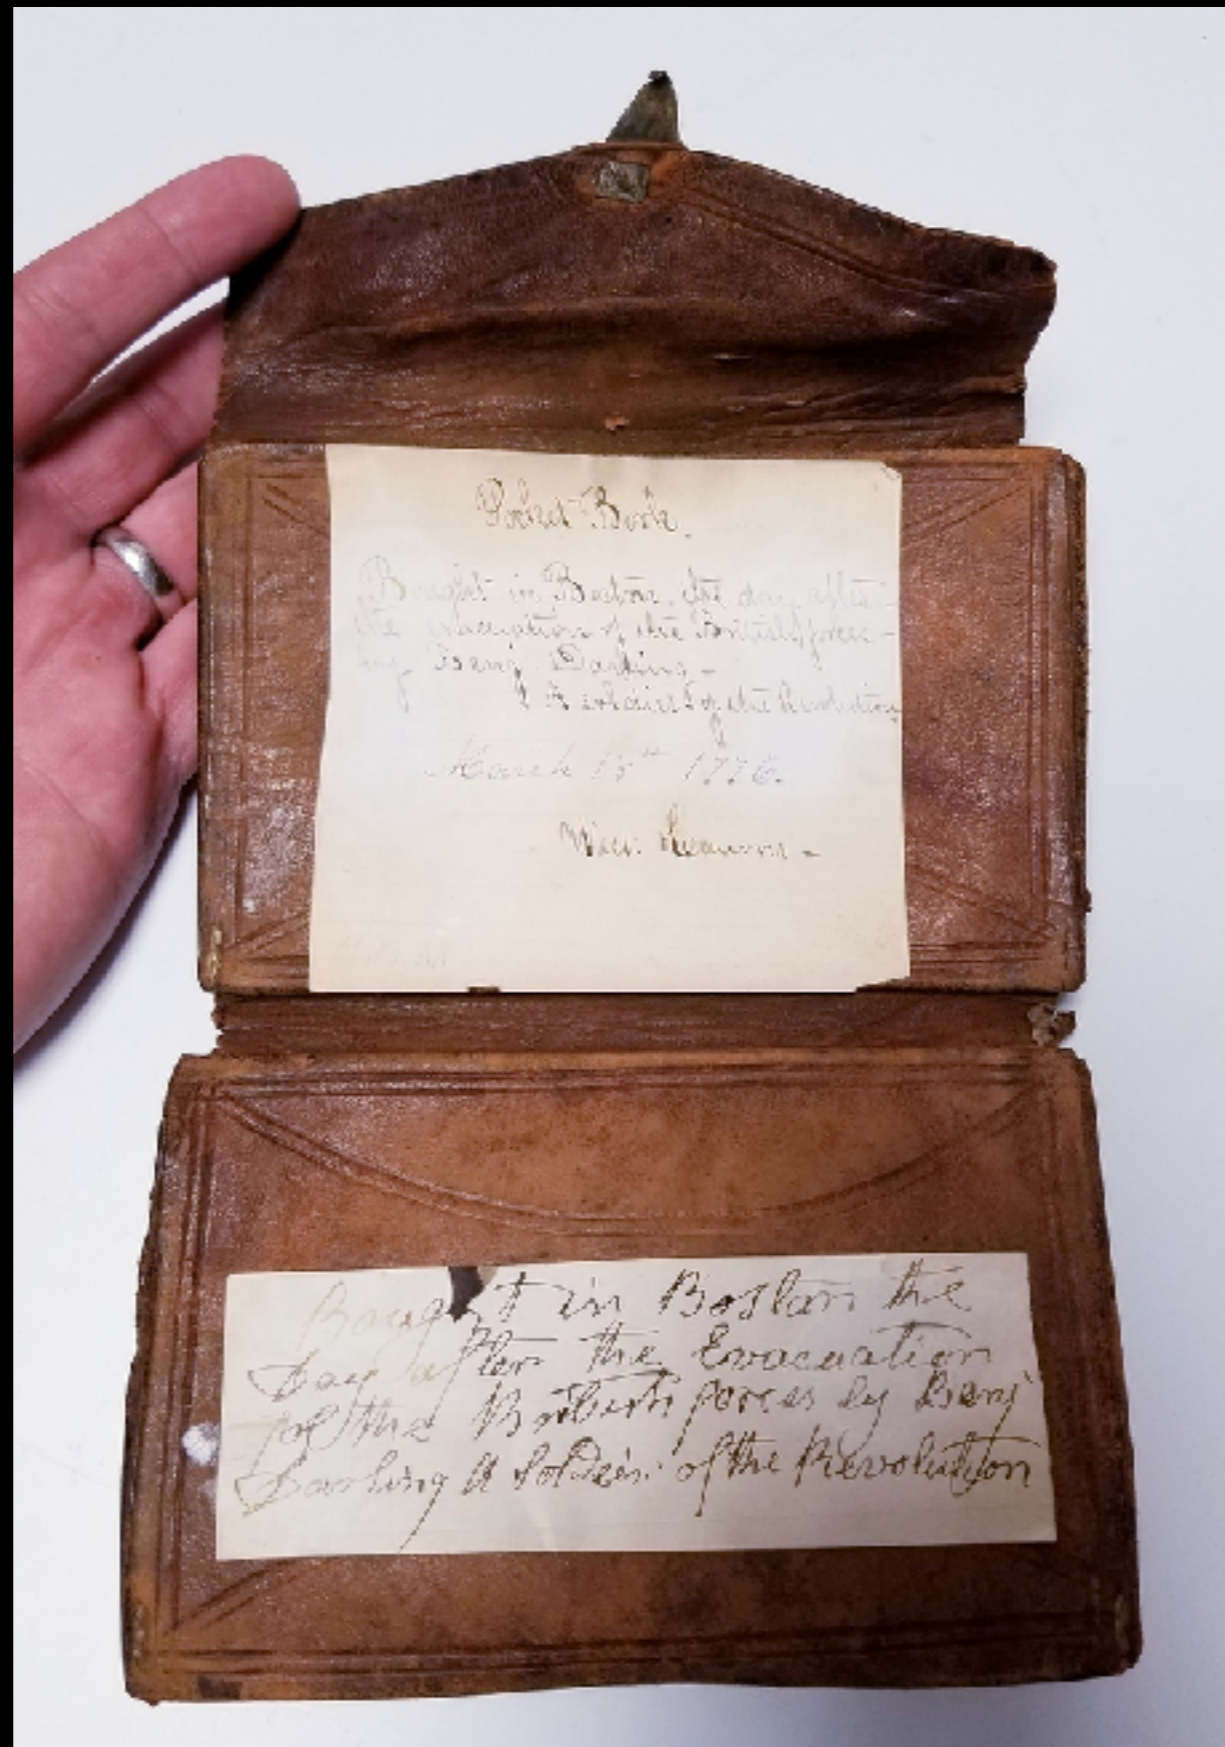 Pocket Book.
Bought in Boston, the day after
the evacuation of the British forces -
by Benj Darling -
A soldier of the Revolution
March 18th 1776.
Bought in Boston the
Day after the Evacuation
of the British forces by Benj
Darling A Soldier of the Revolution